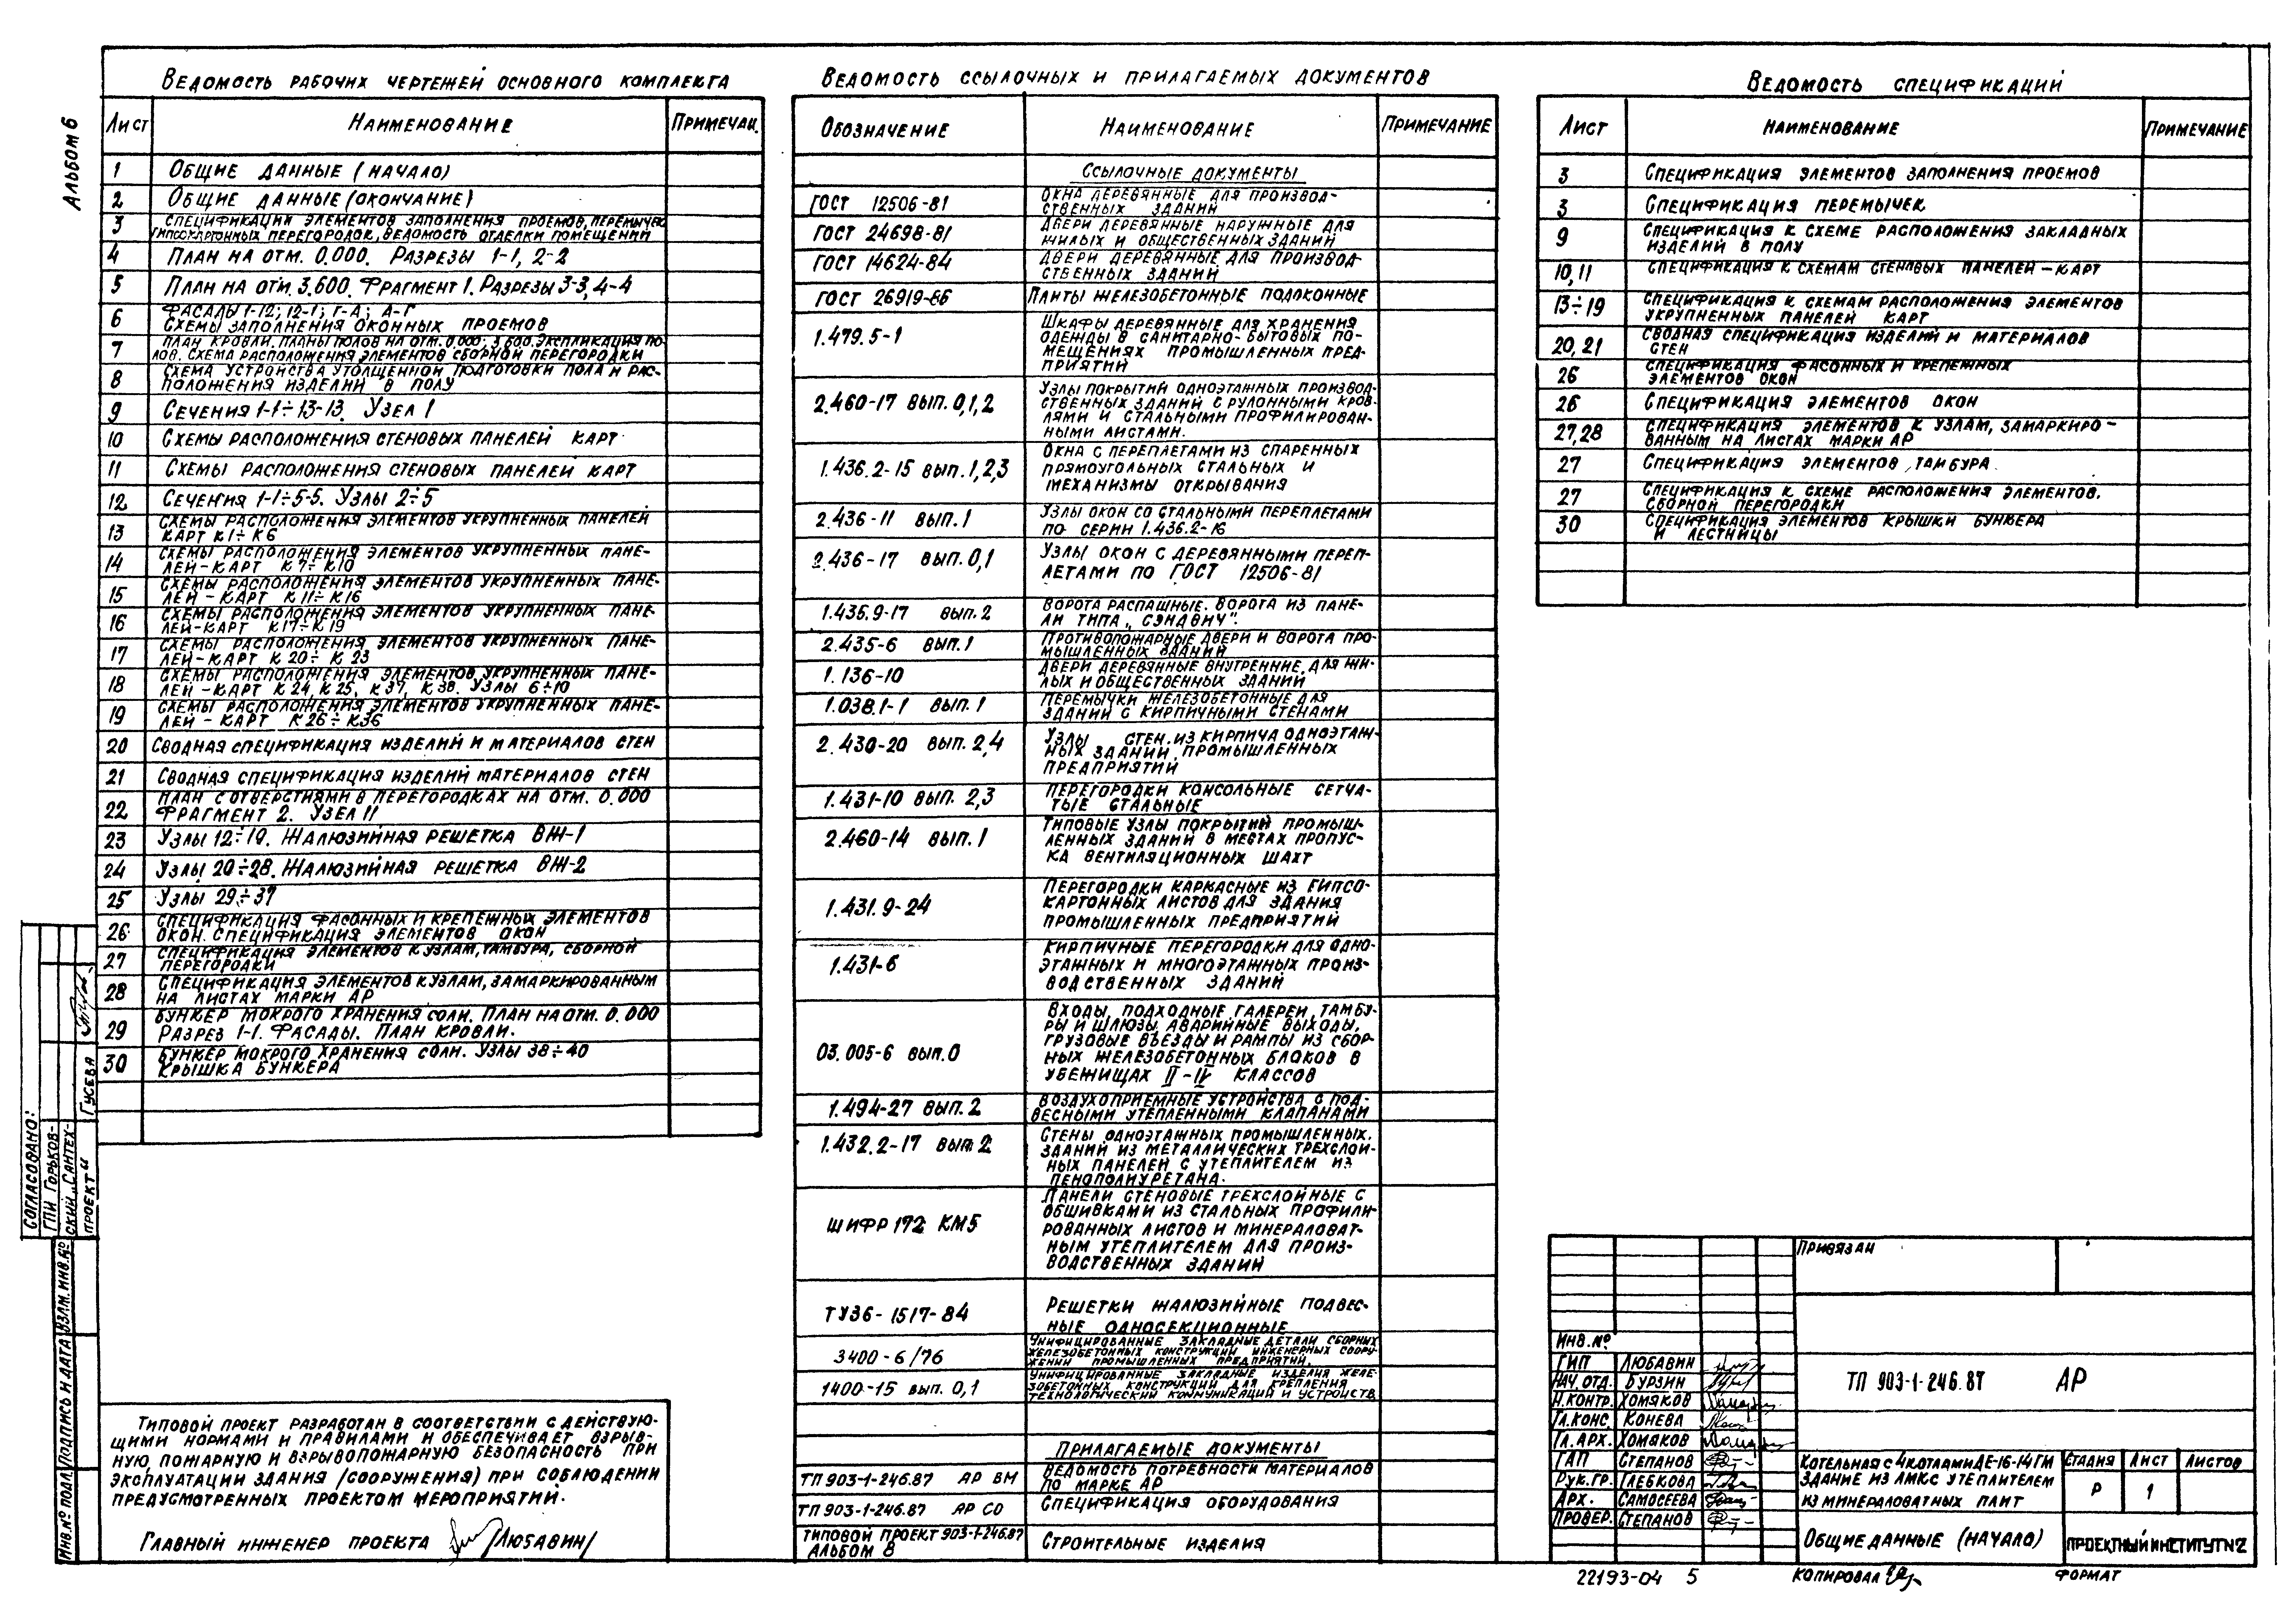 Альбом 6
Ведомость рабочих чертежей основного комплекта
Лист
Наименование
Примечан.
1 Общие данные (начало)
2 Общие данные (окончание)
3 Спецификации элементов заполнения проемов, перемычек
гипсокартонных перегородок, ведомость отделки помещений
4 План на отм. 0.000. Разрезы 1-1, 2-2
5 План на отм. 3.600. Фрагмент 1. Разрезы 3-3, 4-4
6 Фасады 1-12; 12-1; Г-А; А-Г
Схемы заполнения оконных проемов
7 План кровли. Планы полов на отм. 0.000; 3.600. Экспликация по-
лов. Схема расположения элементов сборной перегородки
8 Схема устройства утолщенной подготовки пола и рас-
положения изделий в полу
9 Сечения 1-1÷13-13. Узел 1
10 Схемы расположения стеновых панелей карт
11 Схемы расположения стеновых панелей карт
12 Сечения 1-1÷5-5. Узлы 2÷5
13 Схемы расположения элементов укрупненных панелей
карт К1÷К6
14 Схемы расположения элементов укрупненных пане-
лей-карт К7÷К10
15 Схемы расположения элементов укрупненных пане-
лей-карт К11÷К16
16 Схемы расположения элементов укрупненных пане-
лей-карт К17÷К19
17 Схемы расположения элементов укрупненных пане-
лей-карт К20÷К23
18 Схемы расположения элементов укрупненных пане-
лей-карт К24, К25, К37, К38. Узлы 6÷10
19 Схемы расположения элементов укрупненных пане-
лей-карт К26÷К36
20 Сводная спецификация изделий и материалов стен
21 Сводная спецификация изделий материалов стен
22 План с отверстиями в перегородках на отм. 0.000
Фрагмент 2. Узел 11
23 Узлы 12÷19. Жалюзийная решетка ВЖ-1
24 Узлы 20÷28. Жалюзийная решетка ВЖ-2
25 Узлы 29÷37
26 Спецификация фасонных и крепежных элементов
окон. Спецификация элементов окон
27 Спецификация элементов к узлам, тамбура, сборной
перегородки
28 Спецификация элементов к узлам, замаркированным
на листах марки АР
29 Бункер мокрого хранения соли. План на отм. 0.000
Разрез 1-1. Фасады. План кровли.
30 Бункер мокрого хранения соли. Узлы 38÷40
Крышка бункера
Типовой проект разработан в соответствии с действую-
щими нормами и правилами и обеспечивает взрыв-
ную, пожарную и взрывопожарную безопасность при
эксплуатации здания /сооружения/ при соблюдении
предусмотренных проектом мероприятий.
Главный инженер проекта /Любавин/
Ведомость ссылочных и прилагаемых документов
Обозначение
Наименование
Примечание
Ссылочные документы
ГОСТ 12506-81 Окна деревянные для производ-
ственных зданий
ГОСТ 24698-81 Двери деревянные наружные для
жилых и общественных зданий
ГОСТ 14624-84 Двери деревянные для производ-
ственных зданий
ГОСТ 26919-86 Плиты железобетонные подоконные
1.479.5-1 Шкафы деревянные для хранения
одежды в санитарно-бытовых по-
мещениях промышленных пред-
приятий
2.460-17 вып. 0,1,2 Узлы покрытий одноэтажных производ-
ственных зданий с рулонными кров-
лями и стальными профилирован-
ными листами.
1.436.2-15 вып. 1,2,3 Окна с переплетами из спаренных
прямоугольных стальных и
механизмы открывания
2.436-11 вып. 1 Узлы окон со стальными переплетами
по серии 1.436.2-16
2.436-17 вып. 0,1 Узлы окон с деревянными переп-
летами по ГОСТ 12506-81
1.435.9-17 вып. 2 Ворота распашные. Ворота из пане-
ли типа „Сэндвич".
2.435-6 вып. 1 Противопожарные двери и ворота про-
мышленных зданий
1.136-10 Двери деревянные внутренние для жи-
лых и общественных зданий
1.038.1-1 вып. 1 Перемычки железобетонные для
зданий с кирпичными стенами
2.430-20 вып. 2,4 Узлы стен из кирпича одноэтаж-
ных зданий промышленных
предприятий
1.431-10 вып. 2,3 Перегородки консольные сетча-
тые стальные
2.460-14 вып. 1 Типовые узлы покрытий промыш-
ленных зданий в местах пропус-
ка вентиляционных шахт
1.431.9-24 Перегородки каркасные из гипсо-
картонных листов для здания
промышленных предприятий
1.431-6 Кирпичные перегородки для одно-
этажных и многоэтажных произ-
водственных зданий
03.005-6 вып. 0 Входы, подходные галереи, тамбу-
ры и шлюзы, аварийные выходы,
грузовые въезды и рампы из сбор-
ных железобетонных блоков в
убежищах II-IV классов
1.494-27 вып. 2 Воздухоприемные устройства с под-
весными утепленными клапанами
1.432.2-17 вып. 2 Стены одноэтажных промышленных.
зданий из металлических трехслой-
ных панелей с утеплителем из
пенополиуретана.
Шифр 172 КМ5 Панели стеновые трехслойные с
обшивками из стальных профили-
рованных листов и минераловат-
ным утеплителем для произ-
водственных зданий
ТУ36-1517-84 Решетки жалюзийные подвес-
ные односекционные
3400-6/76 Унифицированные закладные детали сборных
железобетонных конструкций инженерных соору-
жений промышленных предприятий.
1400-15 вып. 0,1 Унифицированные закладные изделия желе-
зобетонных конструкций для крепления
технологических коммуникаций и устройств
Прилагаемые документы
ТП 903-1-246.87 АР ВМ Ведомость потребности материалов
по марке АР
ТП 903-1-246.87 АР СО Спецификация оборудования
Типовой проект 903-1-246.87
Альбом 8 Строительные изделия
Ведомость спецификаций
Лист
Наименование
Примечание
3 Спецификация элементов заполнения проемов
3 Спецификация перемычек
9 Спецификация к схеме расположения закладных
изделий в полу
10,11 Спецификация к схемам стеновых панелей-карт
13÷19 Спецификация к схемам расположения элементов
укрупненных панелей карт
20,21 Сводная спецификация изделий и материалов
стен
26 Спецификация фасонных и крепежных
элементов окон
26 Спецификация элементов окон
27,28 Спецификация элементов к узлам, замаркиро-
ванным на листах марки АР
27 Спецификация элементов тамбура
27 Спецификация к схеме расположения элементов.
сборной перегородки
30 Спецификация элементов крышки бункера
и лестницы
Согласовано:
ГПИ Горьков-
ский „Сантех-
проект“
Гусева
Взам. инв. №
Подпись и дата
Инв. № подл.
Привязан
Инв. №
ГИП Любавин
Нач. отд. Бурзин
Н. контр. Хомяков
Гл. конс. Конева
Гл. арх. Хомяков
ГАП Степанов
Рук. гр. Глебкова
Арх. Самосеева
Провер. Степанов
ТП 903-1-246.87 АР
Котельная с 4 котлами ДЕ-16-14 ГМ
Здание из ЛМК с утеплителем
из минераловатных плит
Стадия Лист Листов
Р 1
Общие данные (начало)
Проектный институт №2
22193-04 5
Копировал
Формат